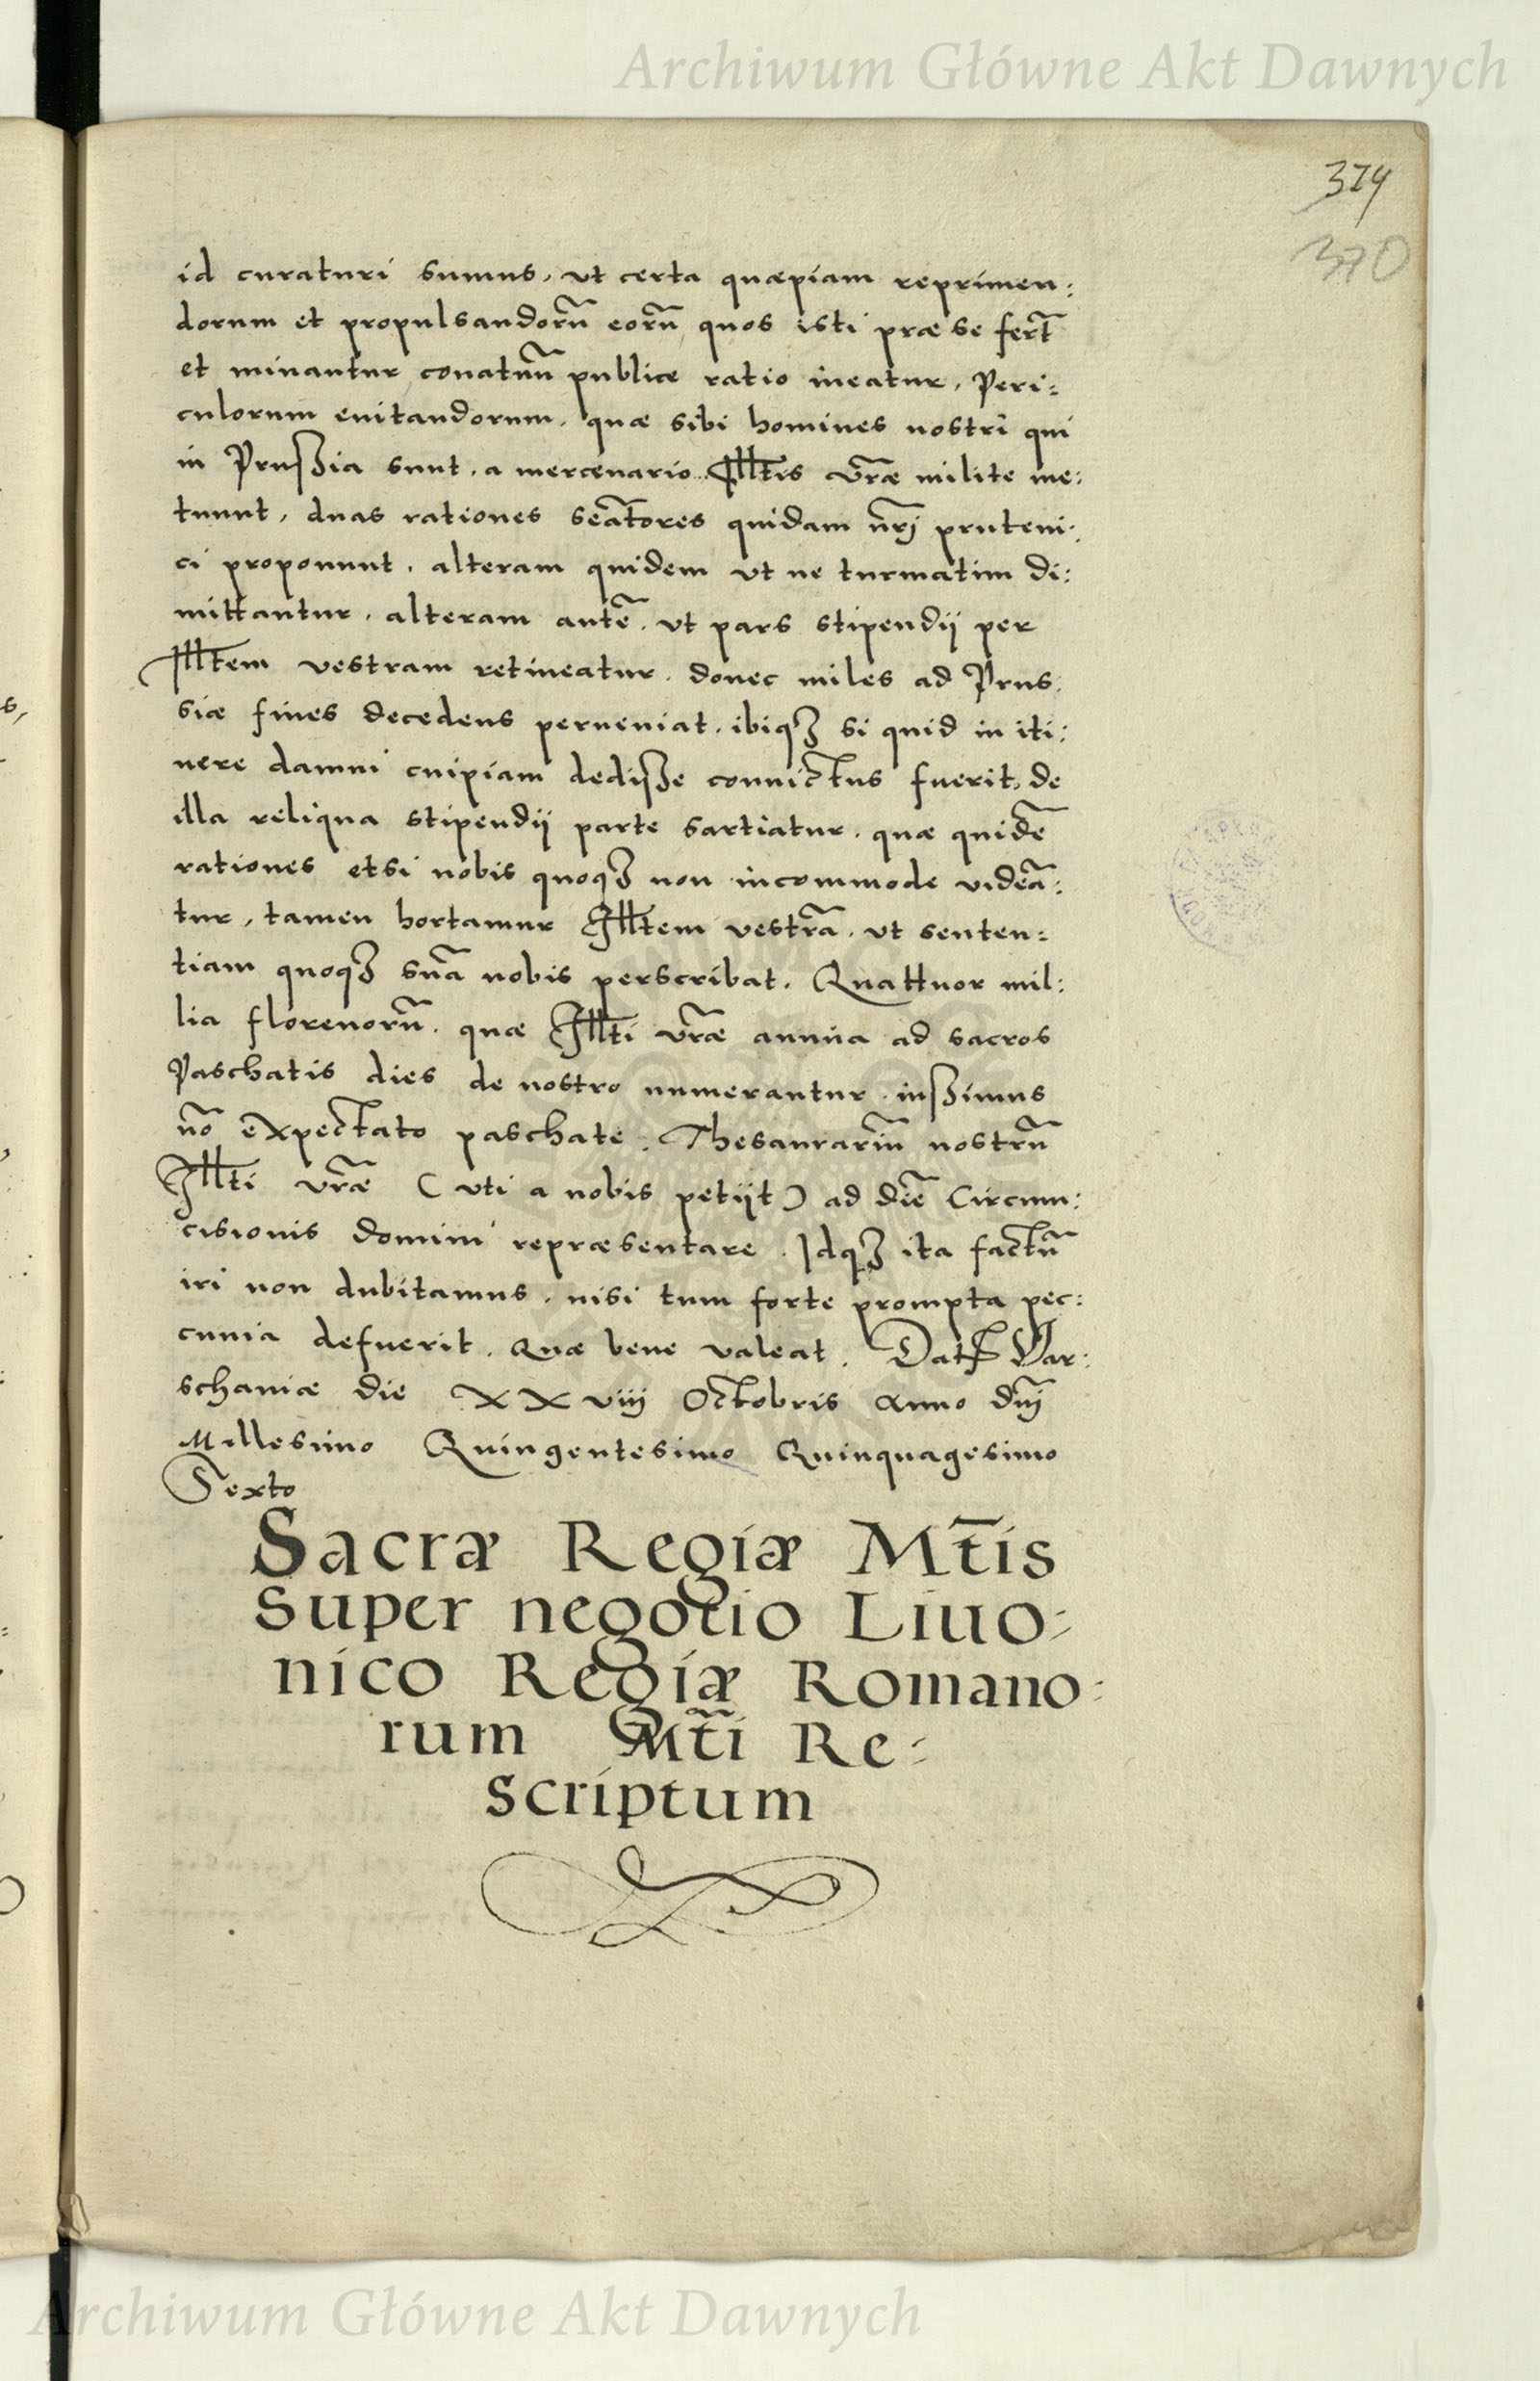 Archiwum Główne Akt Dawnych
374
370
id curaturi sumus, ut certa quæpiam reprimen:
dorum et propulsandorũ eorũ quos isti præ se fert̃
et minantur conatuũ publicæ ratio ineatur. Peri:
culorum euitandorum, quæ sibi homines nostri qui
in Prussia sunt, a mercenario Illtis vr̃æ milite me:
tuunt, duas rationes sẽatores quidam nr̃j pruteni:
ci proponunt, alteram quidem ut ne turmatim di:
mittantur, alteram autẽ, ut pars stipendij per
Illtem vestram retineatur, donec miles ad Prus:
siæ fines decedens perueniat, ibiqȝ si quid in iti:
nere damni cuipiam dedisse conuictus fuerit, de
illa reliqua stipendij parte sartiatur, quæ quidẽ
rationes etsi nobis quoqȝ non incommode videã:
tur, tamen hortamur Illtem vestrã, ut senten:
tiam quoqȝ suã nobis perscribat. Quattuor mil:
lia florenorũ, quæ Illti vr̃æ annua ad sacros
Paschatis dies de nostro numerantur, iussimus
nõ expectato paschate, Thesaurariũ nostrũ
Illti vr̃æ (uti a nobis petijt) ad diẽ Circum:
cisionis domini repræsentare. Idqȝ ita factũ
iri non dubitamus, nisi tum forte prompta pec:
cunia defuerit. Quæ bene valeat. Dat Var:
schauiæ die XXviij Octobris Anno dñj
Millesimo Quingentesimo Quinquagesimo
Sexto
Sacræ Regiæ Mt̃is
super negotio Liuo:
nico Regiæ Romano:
rum Mt̃i Re:
scriptum
Archiwum Główne Akt Dawnych